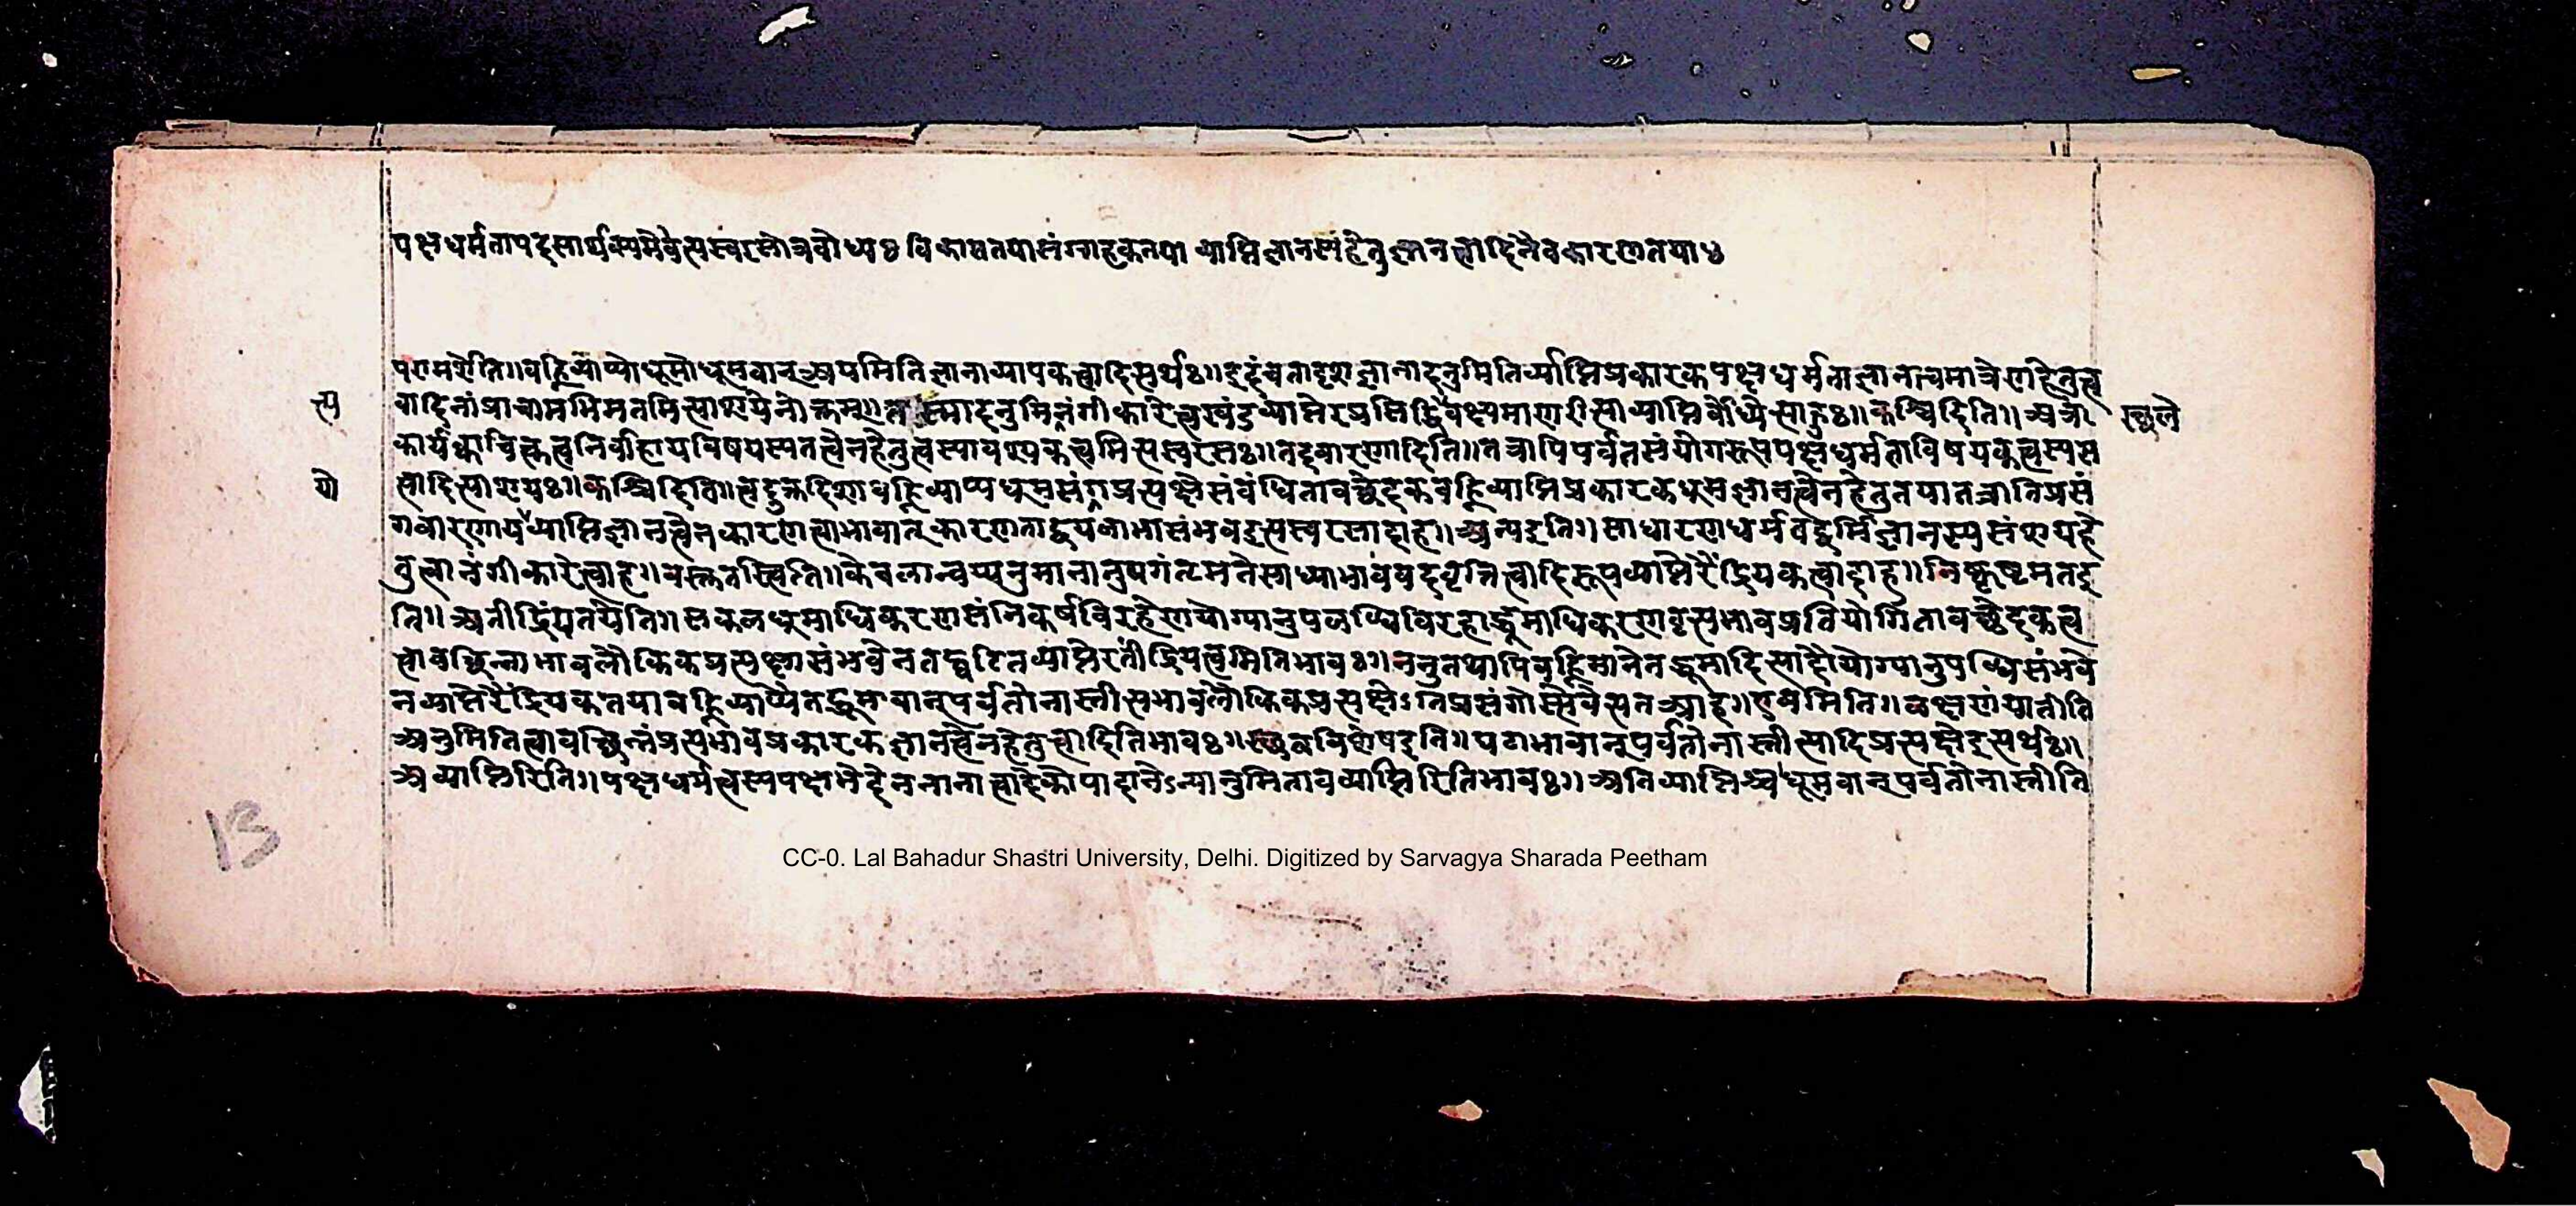 पक्षधर्मतापदसार्थक्यमैवेत्यस्वरसोत्रबोध्यः
परामर्शेति॥वह्निव्याप्योधूमोधूमवान्अयमितिज्ञानाव्यापकत्वादित्यर्थः॥इदंचतादृशज्ञानादनुमितिर्व्याप्तिप्रकारकपक्षधर्मताज्ञानत्वमात्रेणहेतुत्व
त्य
वादिनांप्राचामभिमतमित्याशयेनोक्तम्॥ व्याप्तिर्बोध्येत्याहुः॥कश्चिदिति॥अत्र
स्थले
कार्य विषयस्यतत्त्वेनहेतुत्वस्यावश्यकत्वमित्यस्वरसः॥तद्वारणादिति॥तत्रापिपर्वतसंयोगरूपपक्षधर्मताविषयकत्वस्यस
यो
त्वादित्याशयः॥कश्चिदिति॥ वह्निव्याप्यधूम संबंधितावच्छेदकवह्निव्याप्तिप्रकारकधूमज्ञानत्वेनहेतुतयातत्रातिप्रसं
गवारणायव्याप्तिज्ञानत्वेनकारणत्वाभावात्कारणता संभवइत्यस्वरसादाह॥अन्यइति॥साधारणधर्मवद्धर्मिज्ञानस्यसंशयहे
तुत्वानंगीकारेत्वाह॥वस्तुतस्त्विति॥केवलान्वय्यनुमानानुप साध्याभाववदवृत्तित्वादिरूपव्याप्तेरैंद्रियकत्वादाह॥निष्कृष्टमतइ
ति॥अतीद्रियतयेति॥सकलधूमाधिकरणसंनिकर्षविरहेणयोग्यानुपलब्धिविरहाद्धूमाधिकरणवृत्त्यभावप्रतियोगितावच्छेदकत्व
त्वावच्छिन्नाभावलौकिकप्रत्यक्षासंभवेनतद्घटितव्याप्तेरतींद्रियत्वमितिभावः॥ननुतथापिवह्निमानेतद्धूमादित्यादौयोग्यानुपलब्धिसंभवे
नव्याप्तेरैंद्रियकतयावह्निव्याप्यैतद्धूमवान्पर्वतोनास्तीत्यभावलौकिकप्रत्यक्षेऽतिप्रसंगोस्त्येवेत्यतआह॥एवमिति॥लक्षणंयातीति
अनुमितित्वावच्छिन्नंप्रत्यभावप्रकारकज्ञानत्वेनहेतुत्वादितिभावः॥ विशेषइति॥घटाभाववान्पर्वतोनास्तीत्यादिप्रत्यक्षेइत्यर्थः॥
अव्याप्तिरिति॥पक्षधर्मत्वस्यपक्षभेदेननानात्वादेकोपादानेऽन्यानुमितावव्याप्तिरितिभावः॥अतिव्याप्तिश्चधूमवान्पर्वतोनास्तीति
13
CC-0. Lal Bahadur Shastri University, Delhi. Digitized by Sarvagya Sharada Peetham